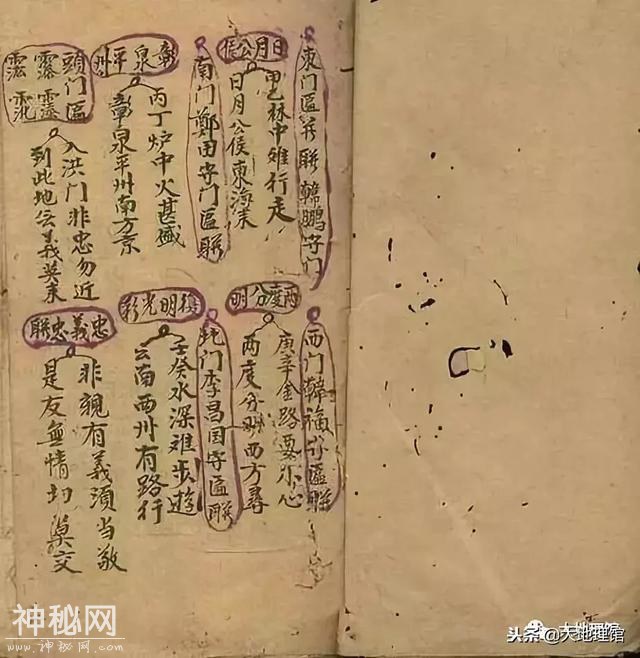 東门區并聯 韓鵬守门
日月公侯
甲乙林中难行走
日月公侯東海來
南门鄭田守门區聯
彰泉平州
丙丁炉中火甚盛
章泉平州南方景
頭门區
入洪门非忠勿近
到此地会義英來
西门韓福守區聯
兩度分明
庚辛金路要小心
两度分明西方尋
北门李昌国守區聯
復明光彩
壬癸水深难步遊
云南西州有路行
忠義忠聯
非親有義須当敬
是友無情切莫交
神秘网
www.神秘网.com
大地理馆
头条@大地理馆